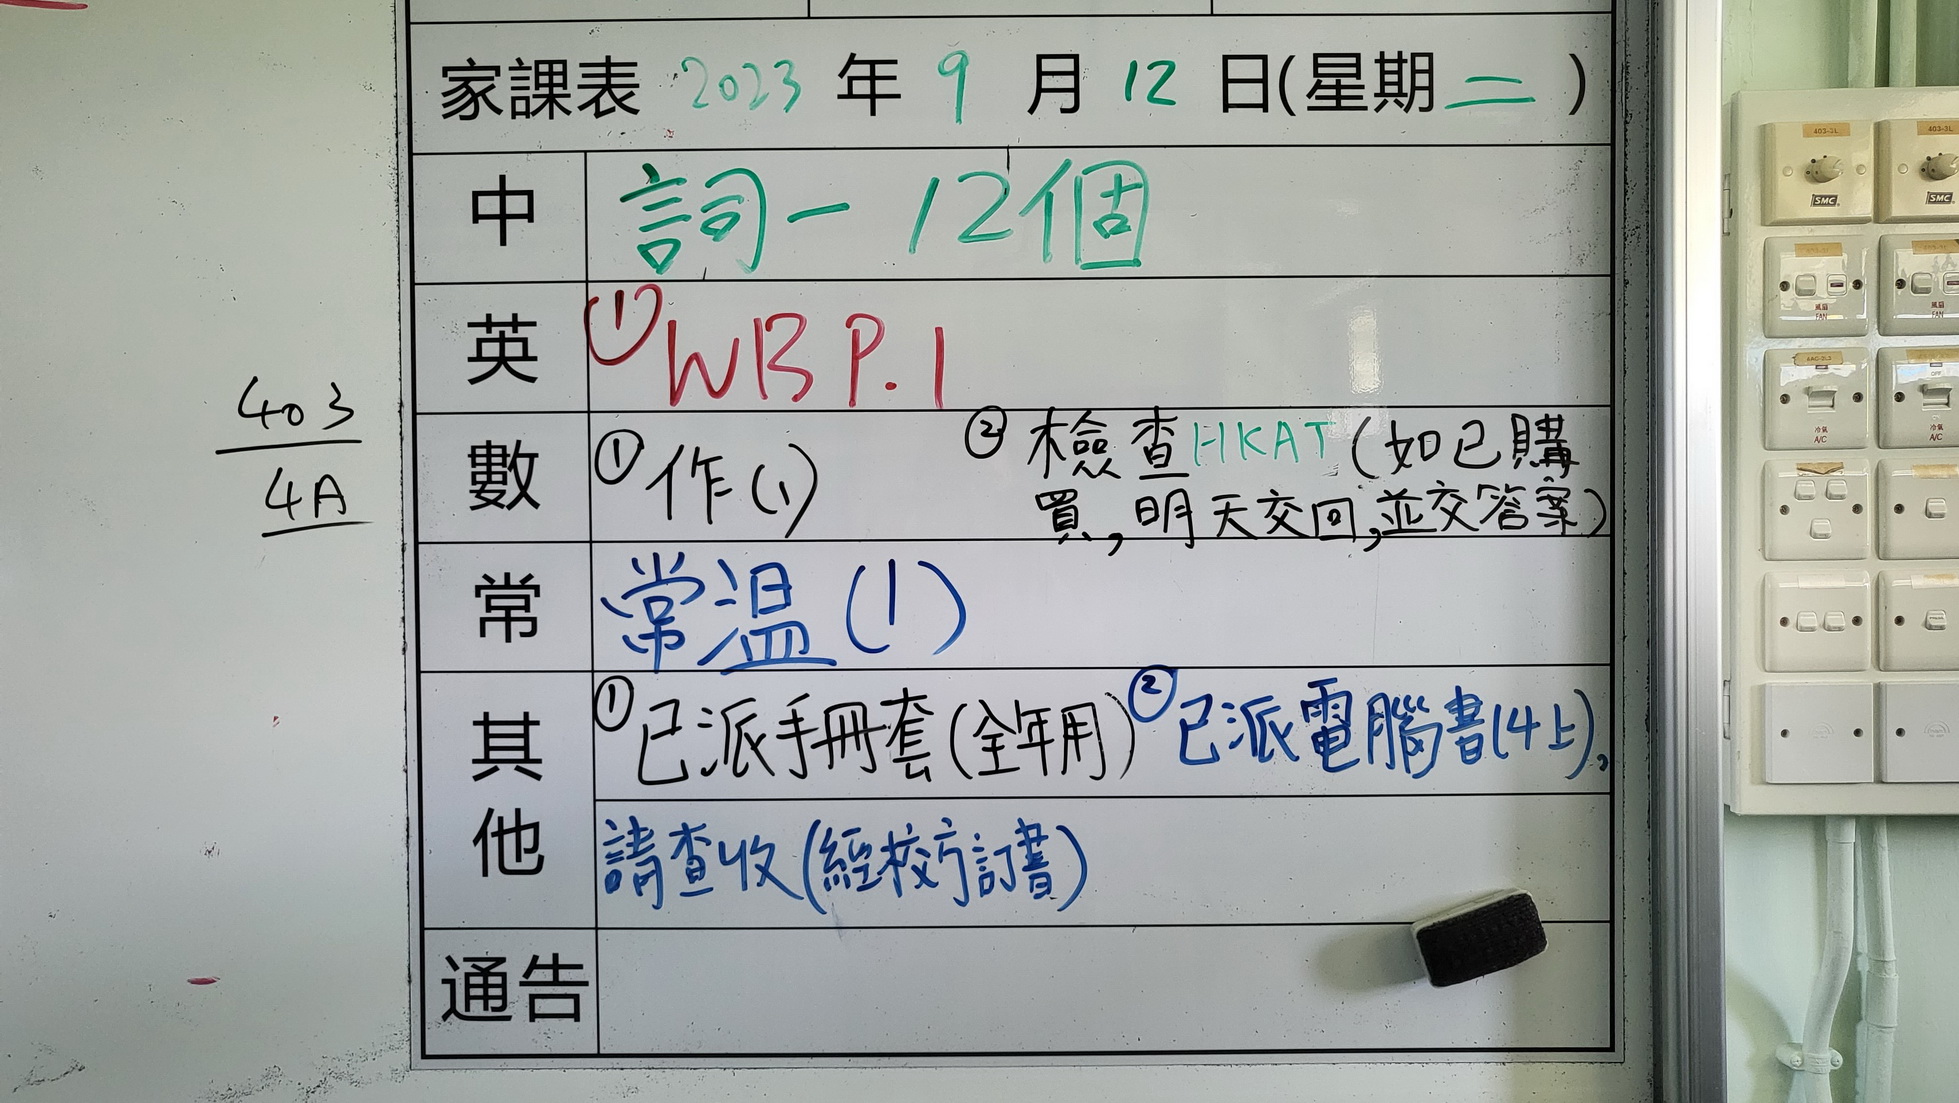 家課表 2023 年 9 月 12 日(星期二)
中 詞一 12個
英 ①WB P.1
數 ①作(1) ②檢查HKAT(如已購
買,明天交回,並交答案)
常 常温(1)
其他 ①已派手冊套(全年用) ②已派電腦書(4上),
請查收(經校方訂書)
通告
403
4A
403-2L
SMC
SMC
風扇
FAN
風扇
FAN
冷氣
A/C
OFF
冷氣
A/C